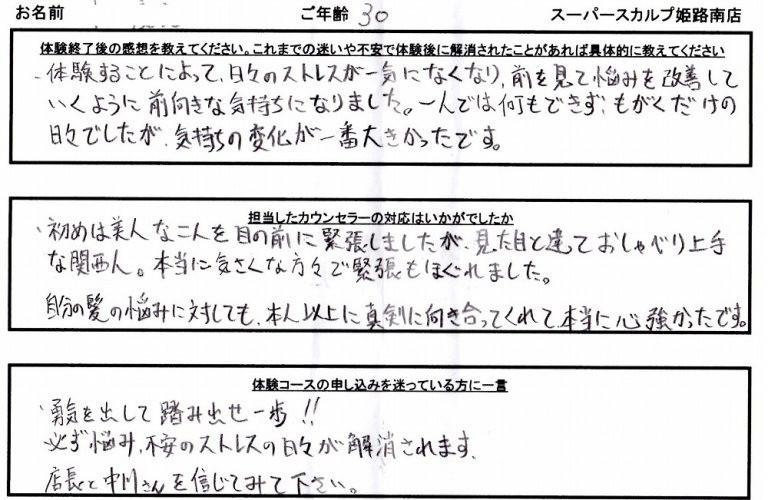 お名前　ご年齢 30　スーパースカルプ姫路南店
体験終了後の感想を教えてください。これまでの迷いや不安で体験後に解消されたことがあれば具体的に教えてください
・体験することによって、日々のストレスが一気になくなり、前を見て悩みを改善して
いくように前向きな気持ちになりました。一人では何もできず、もがくだけの
日々でしたが、気持ちの変化が一番大きかったです。
担当したカウンセラーの対応はいかがでしたか
・初めは美人な二人を目の前に緊張しましたが、見た目と違っておしゃべり上手
な関西人。本当に気さくな方々で緊張もほぐれました。
自分の髪の悩みに対しても、本人以上に真剣に向き合ってくれて、本当に心強かったです。
体験コースの申し込みを迷っている方に一言
・勇気を出して踏み出せ一歩!!
必ず悩み、不安のストレスの日々が解消されます。
店長と中川さんを信じてみて下さい。